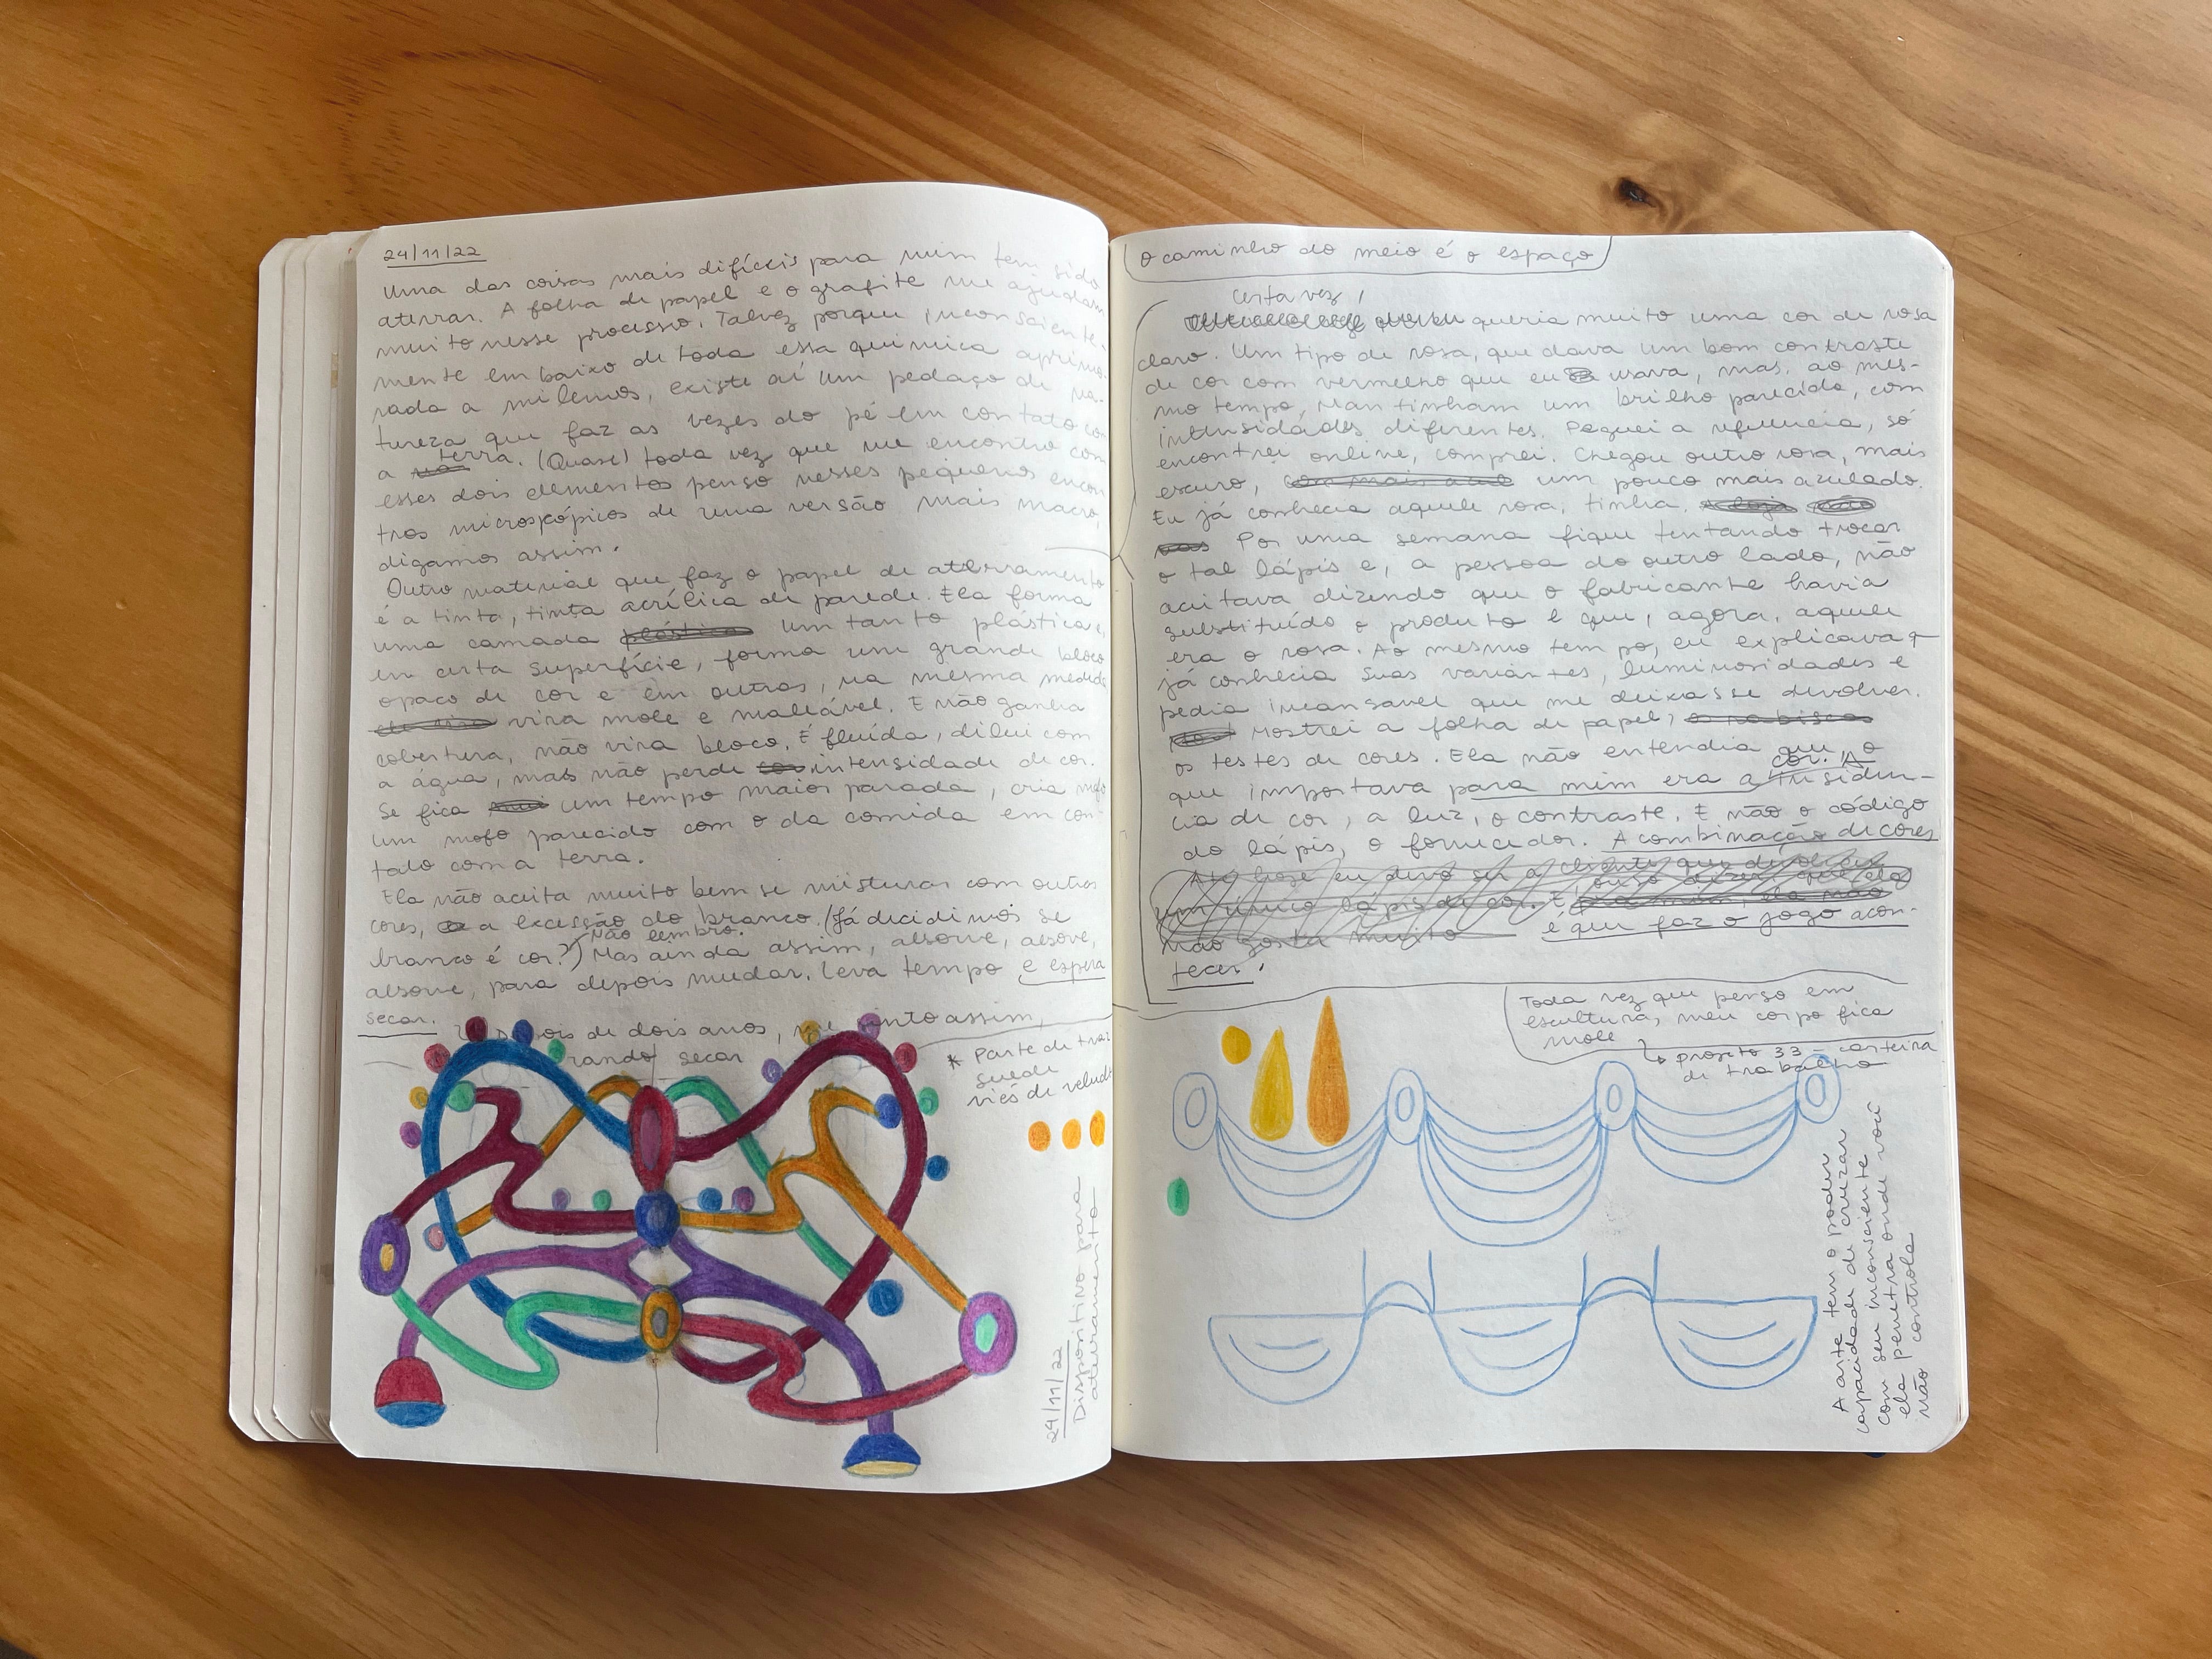 24/11/22
Uma das coisas mais difíceis para mim tem sido
aterrar. A folha de papel e o grafite me ajudam
muito nesse processo. Talvez porque inconsciente-
mente em baixo de toda essa química aprimo-
rada a milenios, existe aí um pedaço de na-
tureza que faz as vezes do pé em contato com
a terra. (Quase) toda vez que me encontro com
esses dois elementos penso nesses pequenos encon
tros microscópicos de uma versão mais macro,
digamos assim.
Outro material que faz o papel de aterramento
é a tinta, tinta acrílica de parede. Ela forma
uma camada plástica um tanto plástica e,
em certa superfície, forma um grande bloco
opaco de cor e em outras, na mesma medida
vira mole e maleável. E não ganha
cobertura, não vira bloco. É fluída, dilui com
a água, mas não perde cor intensidade de cor.
Se fica um tempo maior parada, cria mofo
um mofo parecido com o da comida em con-
tato com a terra.
Ela não aceita muito bem se misturar com outras
cores, a excessão do branco. (Já decidimos se
branco é cor?) Não lembro. Mas ainda assim, absorve, absorve,
absorve, para depois mudar. Leva tempo e espera
secar.
dois anos, me sinto assim,
secar
* Parte de traz
suede
viés de veludo
24/11/22
Dispositivo para
aterramento
O caminho do meio é o espaço
Certa vez,
queria muito uma cor de rosa
claro. Um tipo de rosa, que dava um bom contraste
de cor com vermelho que eu usava, mas, ao mes-
mo tempo, mantinham um brilho parecido, com
intensidades diferentes. Peguei a referencia, só
encontrei online, comprei. Chegou outro rosa, mais
escuro, com mais azul um pouco mais azulado.
Eu já conhecia aquele rosa, tinha. A loja não
Por uma semana fiquei tentando trocar
o tal lápis e, a pessoa do outro lado, não
aceitava dizendo que o fabricante havia
substituído o produto e que, agora, aquele
era o rosa. Ao mesmo tempo, eu explicava q
já conhecia suas variantes, luminosidades e
pedia incansavel que me deixasse devolver.
Mostrei a folha de papel, o rabisco
os testes de cores. Ela não entendia que, o
que importava para mim era a cor. A insiden-
cia de cor, a luz, o contraste. E não o código
do lápis, o fornecedor. A combinação de cores
Até hoje eu devo ser a cliente que devolveu
um único lápis de cor. E
não gosta muito é que faz o jogo acon-
tecer.
Toda vez que penso em
escultura, meu corpo fica
mole
↳ projeto 33 - carteira
de trabalho
A arte tem o poder
capacidade de cruzar
com seu inconsciente
ela penetra onde você
não controla